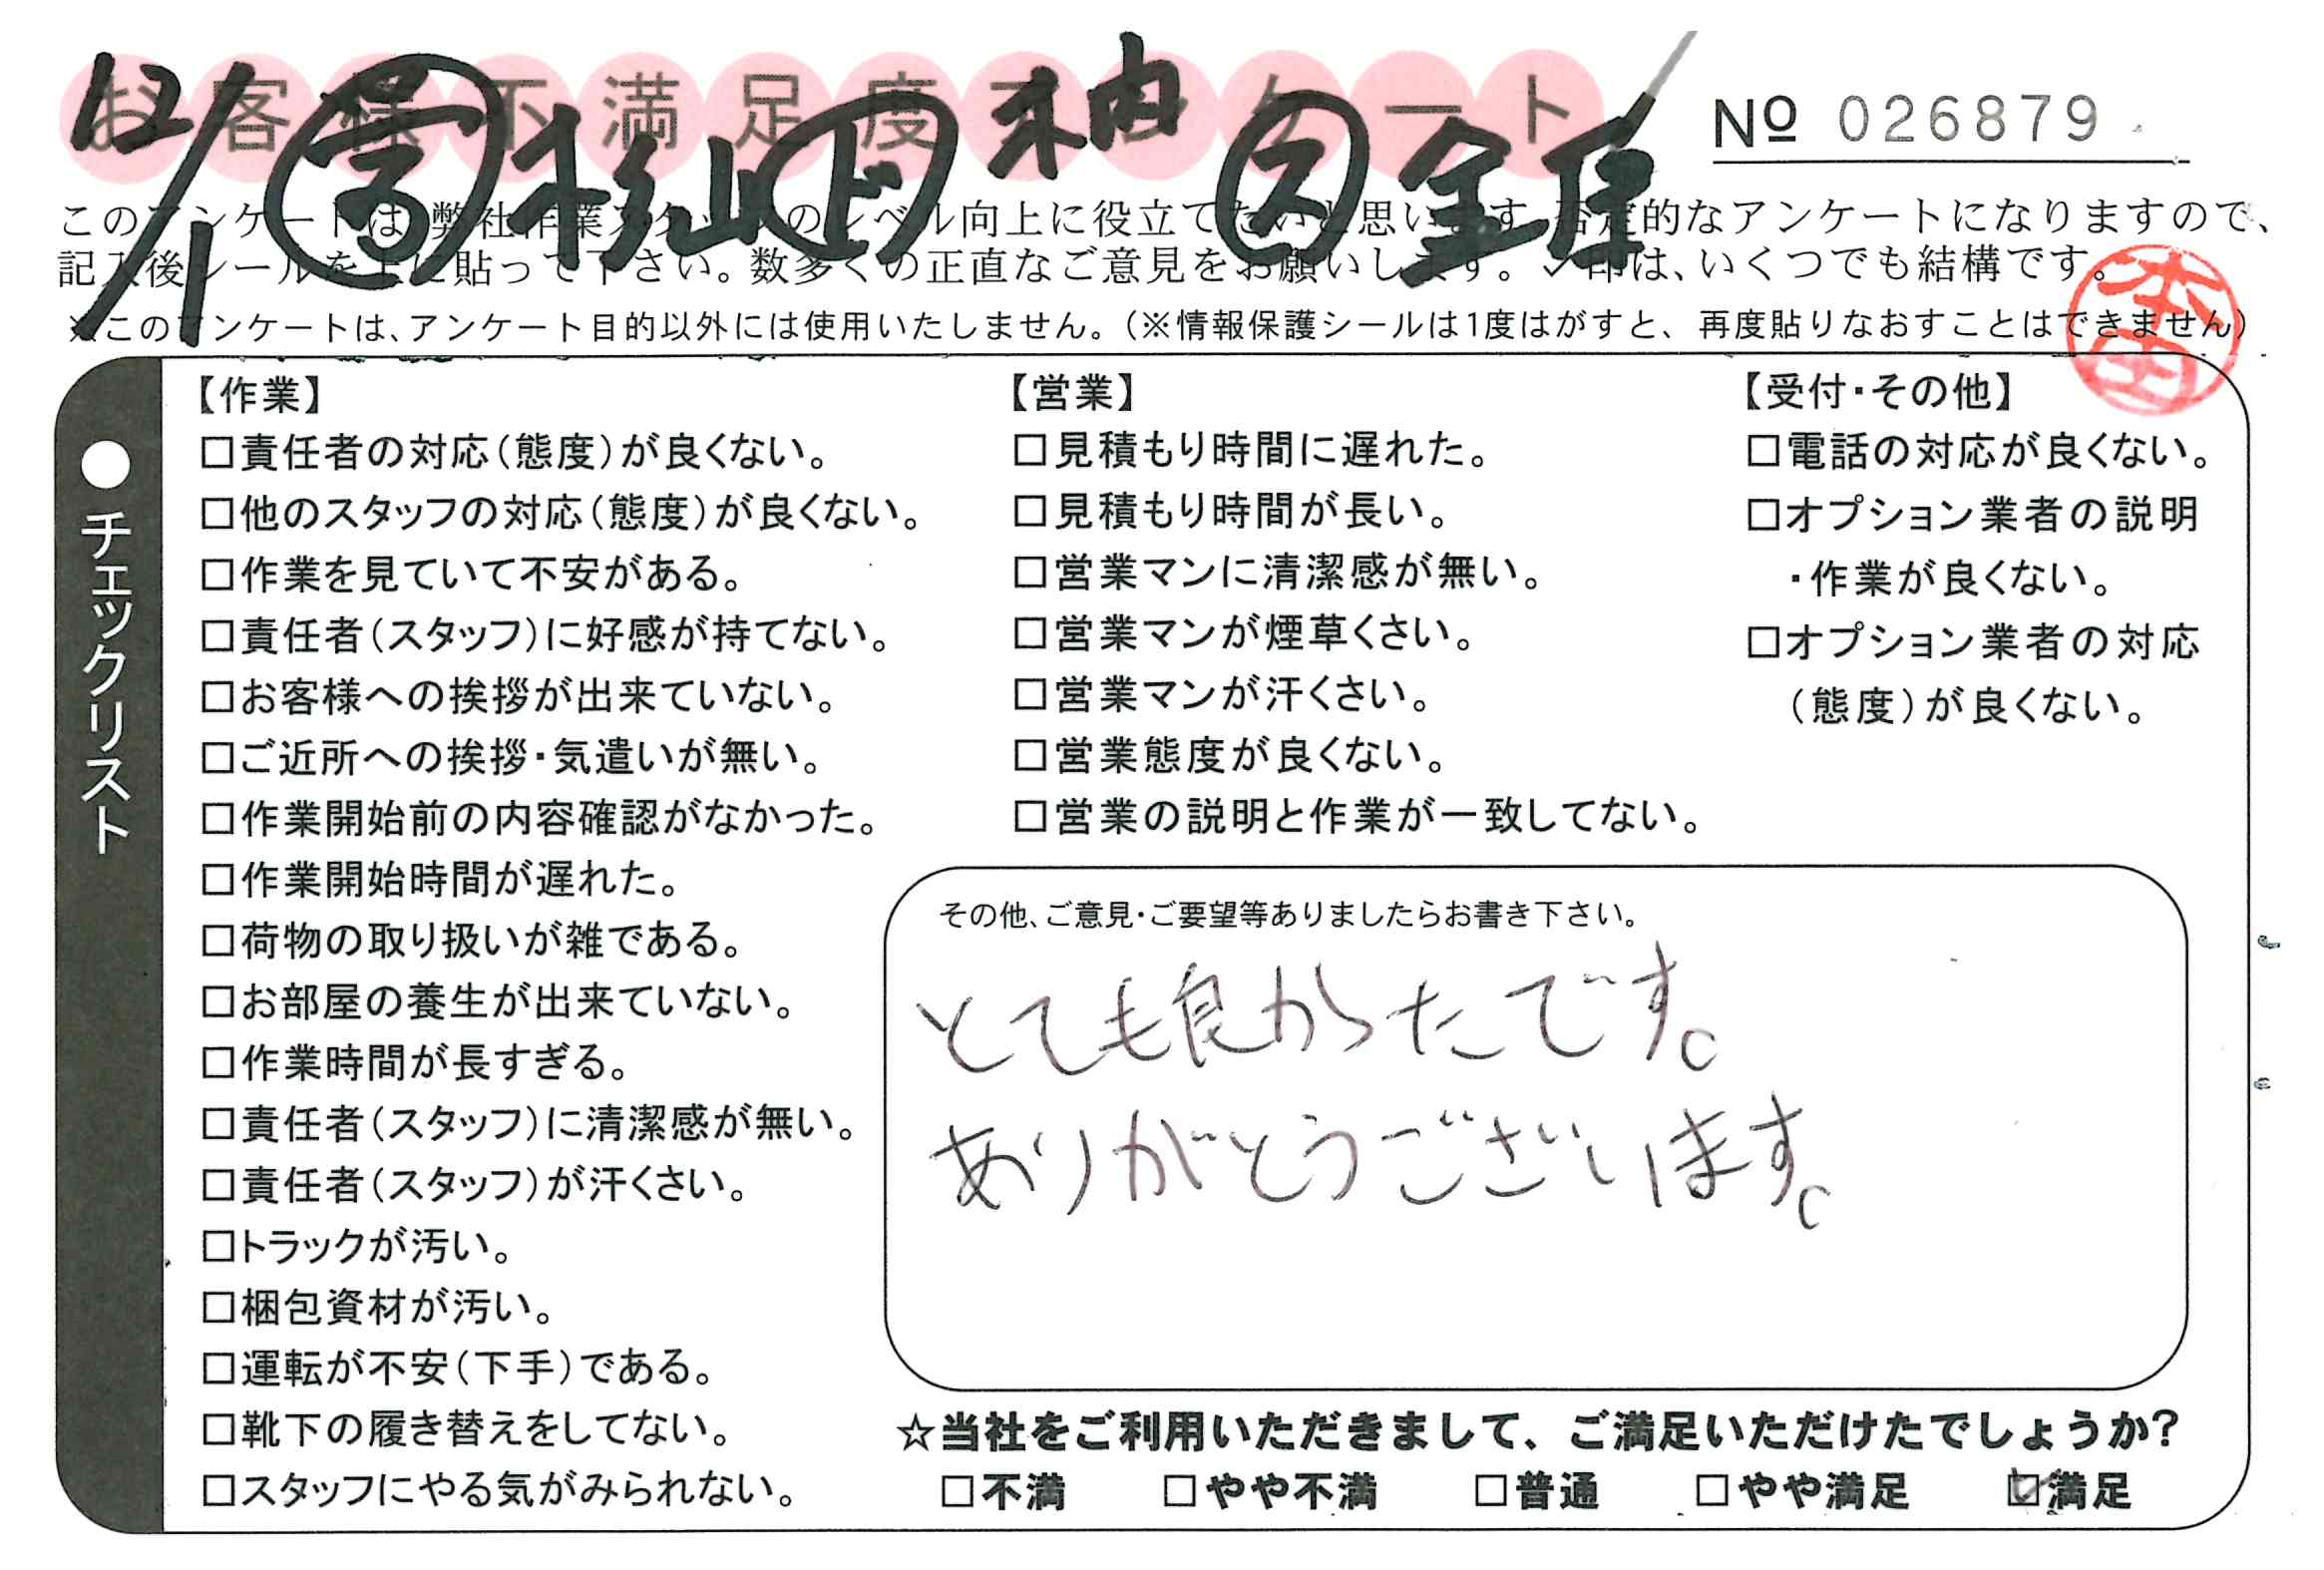 お客様不満足度アンケート
No 026879
12/1 営 杉山 ド 柚 ス
このアンケートは、弊社作業スタッフのレベル向上に役立てたいと思います。否定的なアンケートになりますので、
記入後シールを上に貼って下さい。数多くの正直なご意見をお願いします。✓印は、いくつでも結構です。
※このアンケートは、アンケート目的以外には使用いたしません。(※情報保護シールは1度はがすと、再度貼りなおすことはできません)
●チェックリスト
【作業】
□責任者の対応(態度)が良くない。
□他のスタッフの対応(態度)が良くない。
□作業を見ていて不安がある。
□責任者(スタッフ)に好感が持てない。
□お客様への挨拶が出来ていない。
□ご近所への挨拶・気遣いが無い。
□作業開始前の内容確認がなかった。
□作業開始時間が遅れた。
□荷物の取り扱いが雑である。
□お部屋の養生が出来ていない。
□作業時間が長すぎる。
□責任者(スタッフ)に清潔感が無い。
□責任者(スタッフ)が汗くさい。
□トラックが汚い。
□梱包資材が汚い。
□運転が不安(下手)である。
□靴下の履き替えをしてない。
□スタッフにやる気がみられない。
【営業】
□見積もり時間に遅れた。
□見積もり時間が長い。
□営業マンに清潔感が無い。
□営業マンが煙草くさい。
□営業マンが汗くさい。
□営業態度が良くない。
□営業の説明と作業が一致してない。
【受付・その他】
□電話の対応が良くない。
□オプション業者の説明
・作業が良くない。
□オプション業者の対応
(態度)が良くない。
その他、ご意見・ご要望等ありましたらお書き下さい。
とても良かったです。
ありがとうございます。
☆当社をご利用いただきまして、ご満足いただけたでしょうか?
□不満 □やや不満 □普通 □やや満足 ☑満足